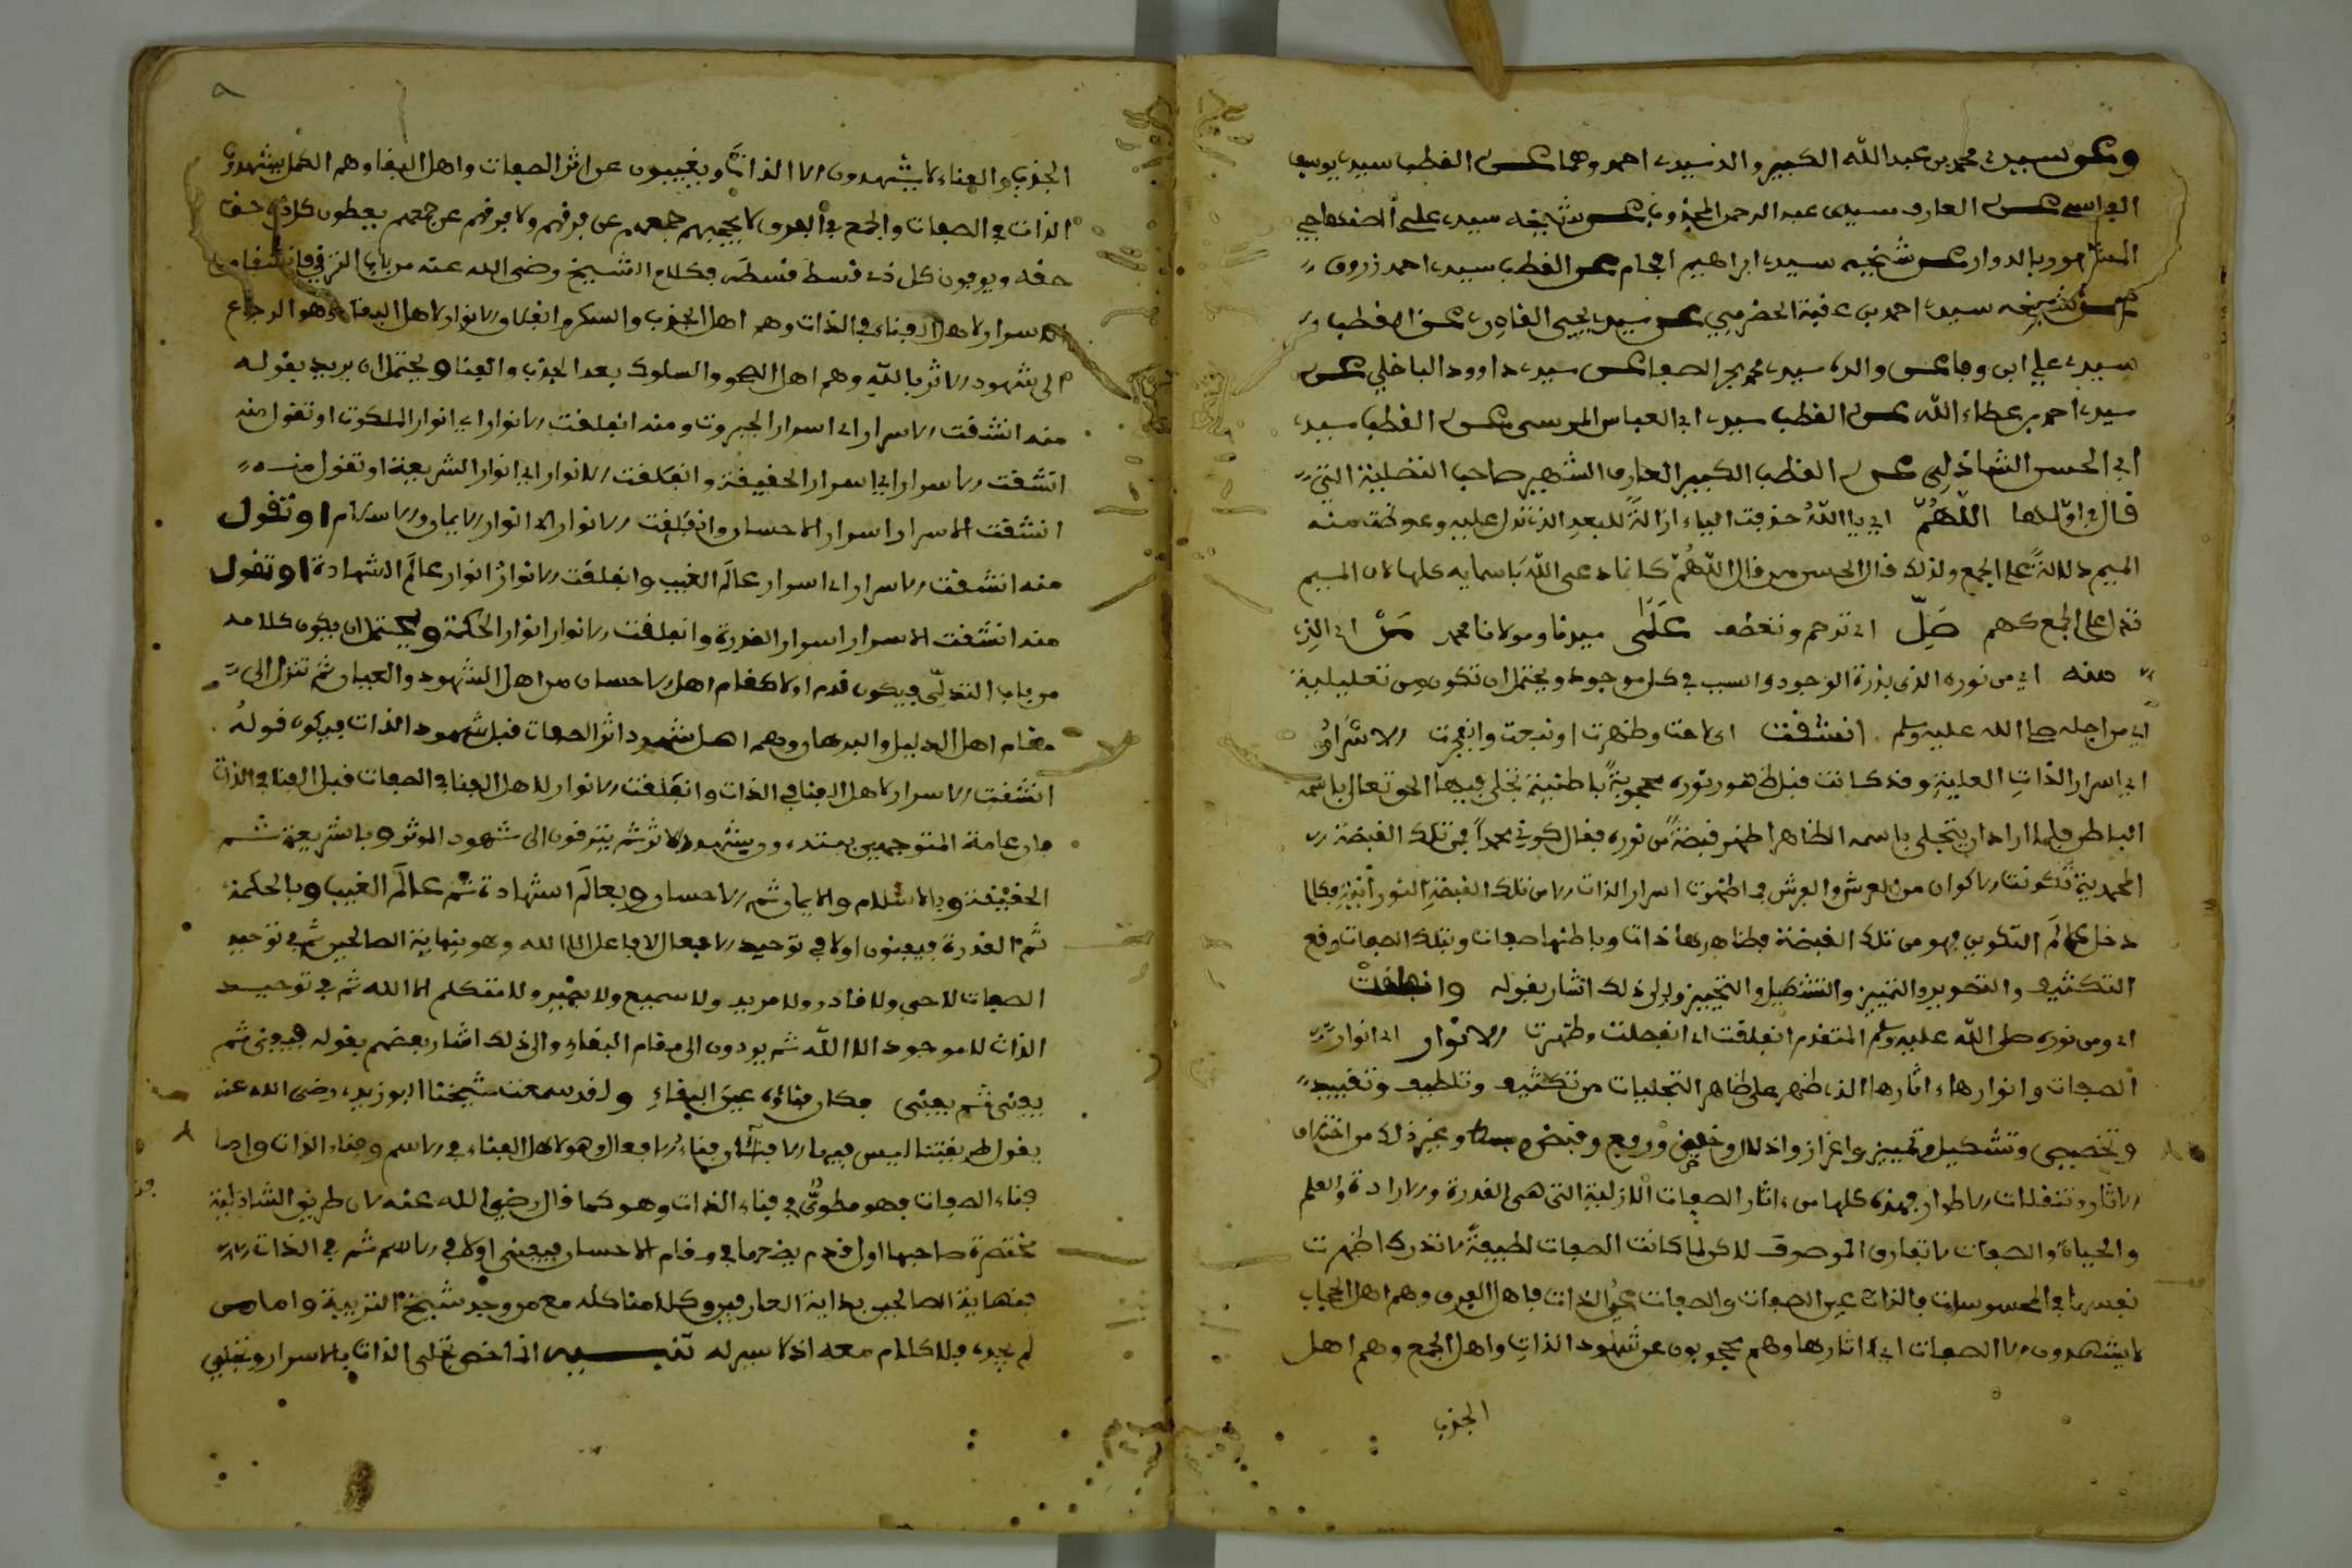 وعن سيدي محمد بن عبد الله الكبير والد سيدي احمد وهما عن القطب سيدي يوسف
الفاسي عن العارف سيدي عبد الرحمن المجذوب عن شيخه سيدي علي الصنهاجي
المشهور بالدوار عن شيخه سيدي ابراهيم افحام عن القطب سيدي احمد زروق
عن شيخه سيدي احمد بن عقبة الحضرمي عن سيدي يحيى القادري عن القطب
سيدي علي ابن وفا عن والده سيدي محمد بحر الصفا عن سيدي داوود الباخلي عن
سيدي احمد بن عطاء الله عن القطب سيدي ابي العباس المرسي عن القطب سيدي
ابي الحسن الشاذلي عن القطب الكبير العارف الشهير صاحب التصلية التي
قال في اولها اللهم اي يا الله حذفت الياء ازالة للبعد الذي تدل عليه وعوضت منه
الميم دلالة على الجمع ولذلك قال الحسن من قال اللهم كانما دعى الله باسمايه كلها لان الميم
تدل على الجمع كهم صل اي ترحم وتعطف على سيدنا ومولانا محمد من اي الذي
منه اي من نوره الذي بذرة الوجود والسبب في كل موجود ويحتمل ان تكون من تعليلية
اي من اجله صلى الله عليه وسلم انشقت اي لاحت وظهرت او نبعت وانفجرت الاسرار
اي اسرار الذات العلية وقد كانت قبل ظهور نوره محجوبة باطنية تجلى فيها الحق تعالى باسمه
الباطن فلما اراد ان يتجلى باسمه الظاهر اظهر قبضة من نوره فقال كوني محمدا فمن تلك القبضة
المحمدية تكونت الاكوان من العرش والفرش فما ظهرت اسرار الذات الا من تلك القبضة النورانية فكلما
دخل عالم التكوين فهو من تلك القبضة فظاهرها ذات وباطنها صفات وبتلك الصفات وقع
التكثيف والتصوير والتمييز والتشكيل والتحييز والى ذلك اشار بقوله وانفلقت
اي ومن نوره صلى الله عليه وسلم المتقدم انفلقت اي انفصلت وظهرت الانوار اي انوار
الصفات وانوارها اثارها الذي ظهر على ظاهر التجليات من تكثيف وتلطيف وتقييد
وتخصيص وتشكيل وتمييز واعزاز واذلال وخفض ورفع وقبض وبسط وغير ذلك من اختلاف
الاثار وتنقلات الاطوار فهذه كلها من اثار الصفات الازلية التي هي القدرة والارادة والعلم
والحياة والصفات لا تفارق الموصوف لاكن لما كانت الصفات لطيفة لا تدرك اظهرت
نفسها في المحسوسات فالذات عين الصفات والصفات عين الذات فاهل الفرق وهم اهل الحجاب
لا يشهدون الا الصفات اي اثارها وهم محجوبون عن شهود الذات واهل الجمع وهم اهل
الجذب
٨
الجذب والفناء لا يشهدون الا الذات ويغيبون عن اثر الصفات واهل البقا وهم الكمل يشهدون
الذات في الصفات والجمع في الفرق لا يحجبهم جمعهم عن فرقهم ولا فرقهم عن جمعهم يعطون كل ذي حق
حقه ويوفون كل ذي قسط قسطه فكلام الشيخ رضي الله عنه من باب الترقي فانشقاق
الاسرار لاهل الفناء في الذات وهم اهل الجذب والسكر وانفلاق الانوار لاهل البقاء وهو الرجاع
الى شهود الاثر بالله وهم اهل الصحو والسلوك بعد الجذب والفنا ويحتمل ان يريد بقوله
منه انشقت الاسرار اي اسرار الجبروت ومنه انفلقت الانوار اي انوار الملكوت او تقول منه
انشقت الاسرار اي اسرار الحقيقة وانفلقت الانوار اي انوار الشريعة او تقول منه
انشقت الاسرار اسرار الاحسان وانفلقت الانوار اي انوار الايمان والاسلام او تقول
منه انشقت الاسرار اي اسرار عالم الغيب وانفلقت الانوار انوار عالم الشهادة او تقول
منه انشقت الاسرار اسرار القدرة وانفلقت الانوار انوار الحكمة ويحتمل ان يكون كلامه
من باب التدلي فيكون قدم اولا مقام اهل الاحسان من اهل الشهود والعيان ثم تنزل الى
مقام اهل الدليل والبرهان وهم اهل شهود اثر الصفات قبل شهود الذات فيكون قوله
انشقت الاسرار لاهل الفنا في الذات وانفلقت الانوار لاهل الفنا في الصفات قبل الفنا في الذات
فان عامة المتوجهين يبتدءون بشهود الاثر ثم يترقون الى شهود الموثر وبالشريعة ثم
الحقيقة وبالاسلام والايمان ثم الاحسان وبعالم الشهادة ثم عالم الغيب وبالحكمة
ثم القدرة فيفنون اولا في توحيد الافعال لا فاعل الا الله وهو نهاية الصالحين ثم في توحيد
الصفات لا حي ولا قادر ولا مريد ولا سميع ولا بصير ولا متكلم الا الله ثم في توحيد
الذات لا موجود الا الله ثم يردون الى مقام البقاء والى ذلك اشار بعضهم بقوله فيفنى ثم
يفنى ثم يفنى فكان فناؤه عين البقاء ولقد سمعت شيخنا البوزيدي رضي الله عنه
يقول طريقتنا ليس فيها الا فناآن فناء الافعال وهو لاهل الفناء في الاسم وفناء الذات واما
فناء الصفات فهو مطوي في فناء الذات وهو كما قال رضي الله عنه لان طريق الشاذلية
مختصرة صاحبها اول قدم يضعها في مقام الاحسان فيفنى اولا في الاسم ثم في الذات
فنهاية الصالحين بداية العارفين وكلامنا كله مع من وجد شيخ التربية واما من
لم يجده فلا كلام معه اذ لا سير له تنبيه اذا خص تجلى الذات بالاسرار وتجلي